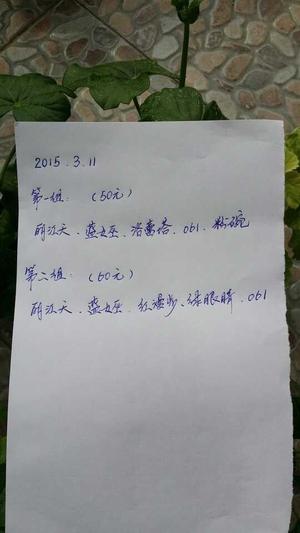 2015.3.11
第一组: (50元)
雨江天、蓝女巫、洛蔷塔、061、粉碗
第二组: (60元)
雨江天、蓝女巫、红漫步、绿眼睛、061